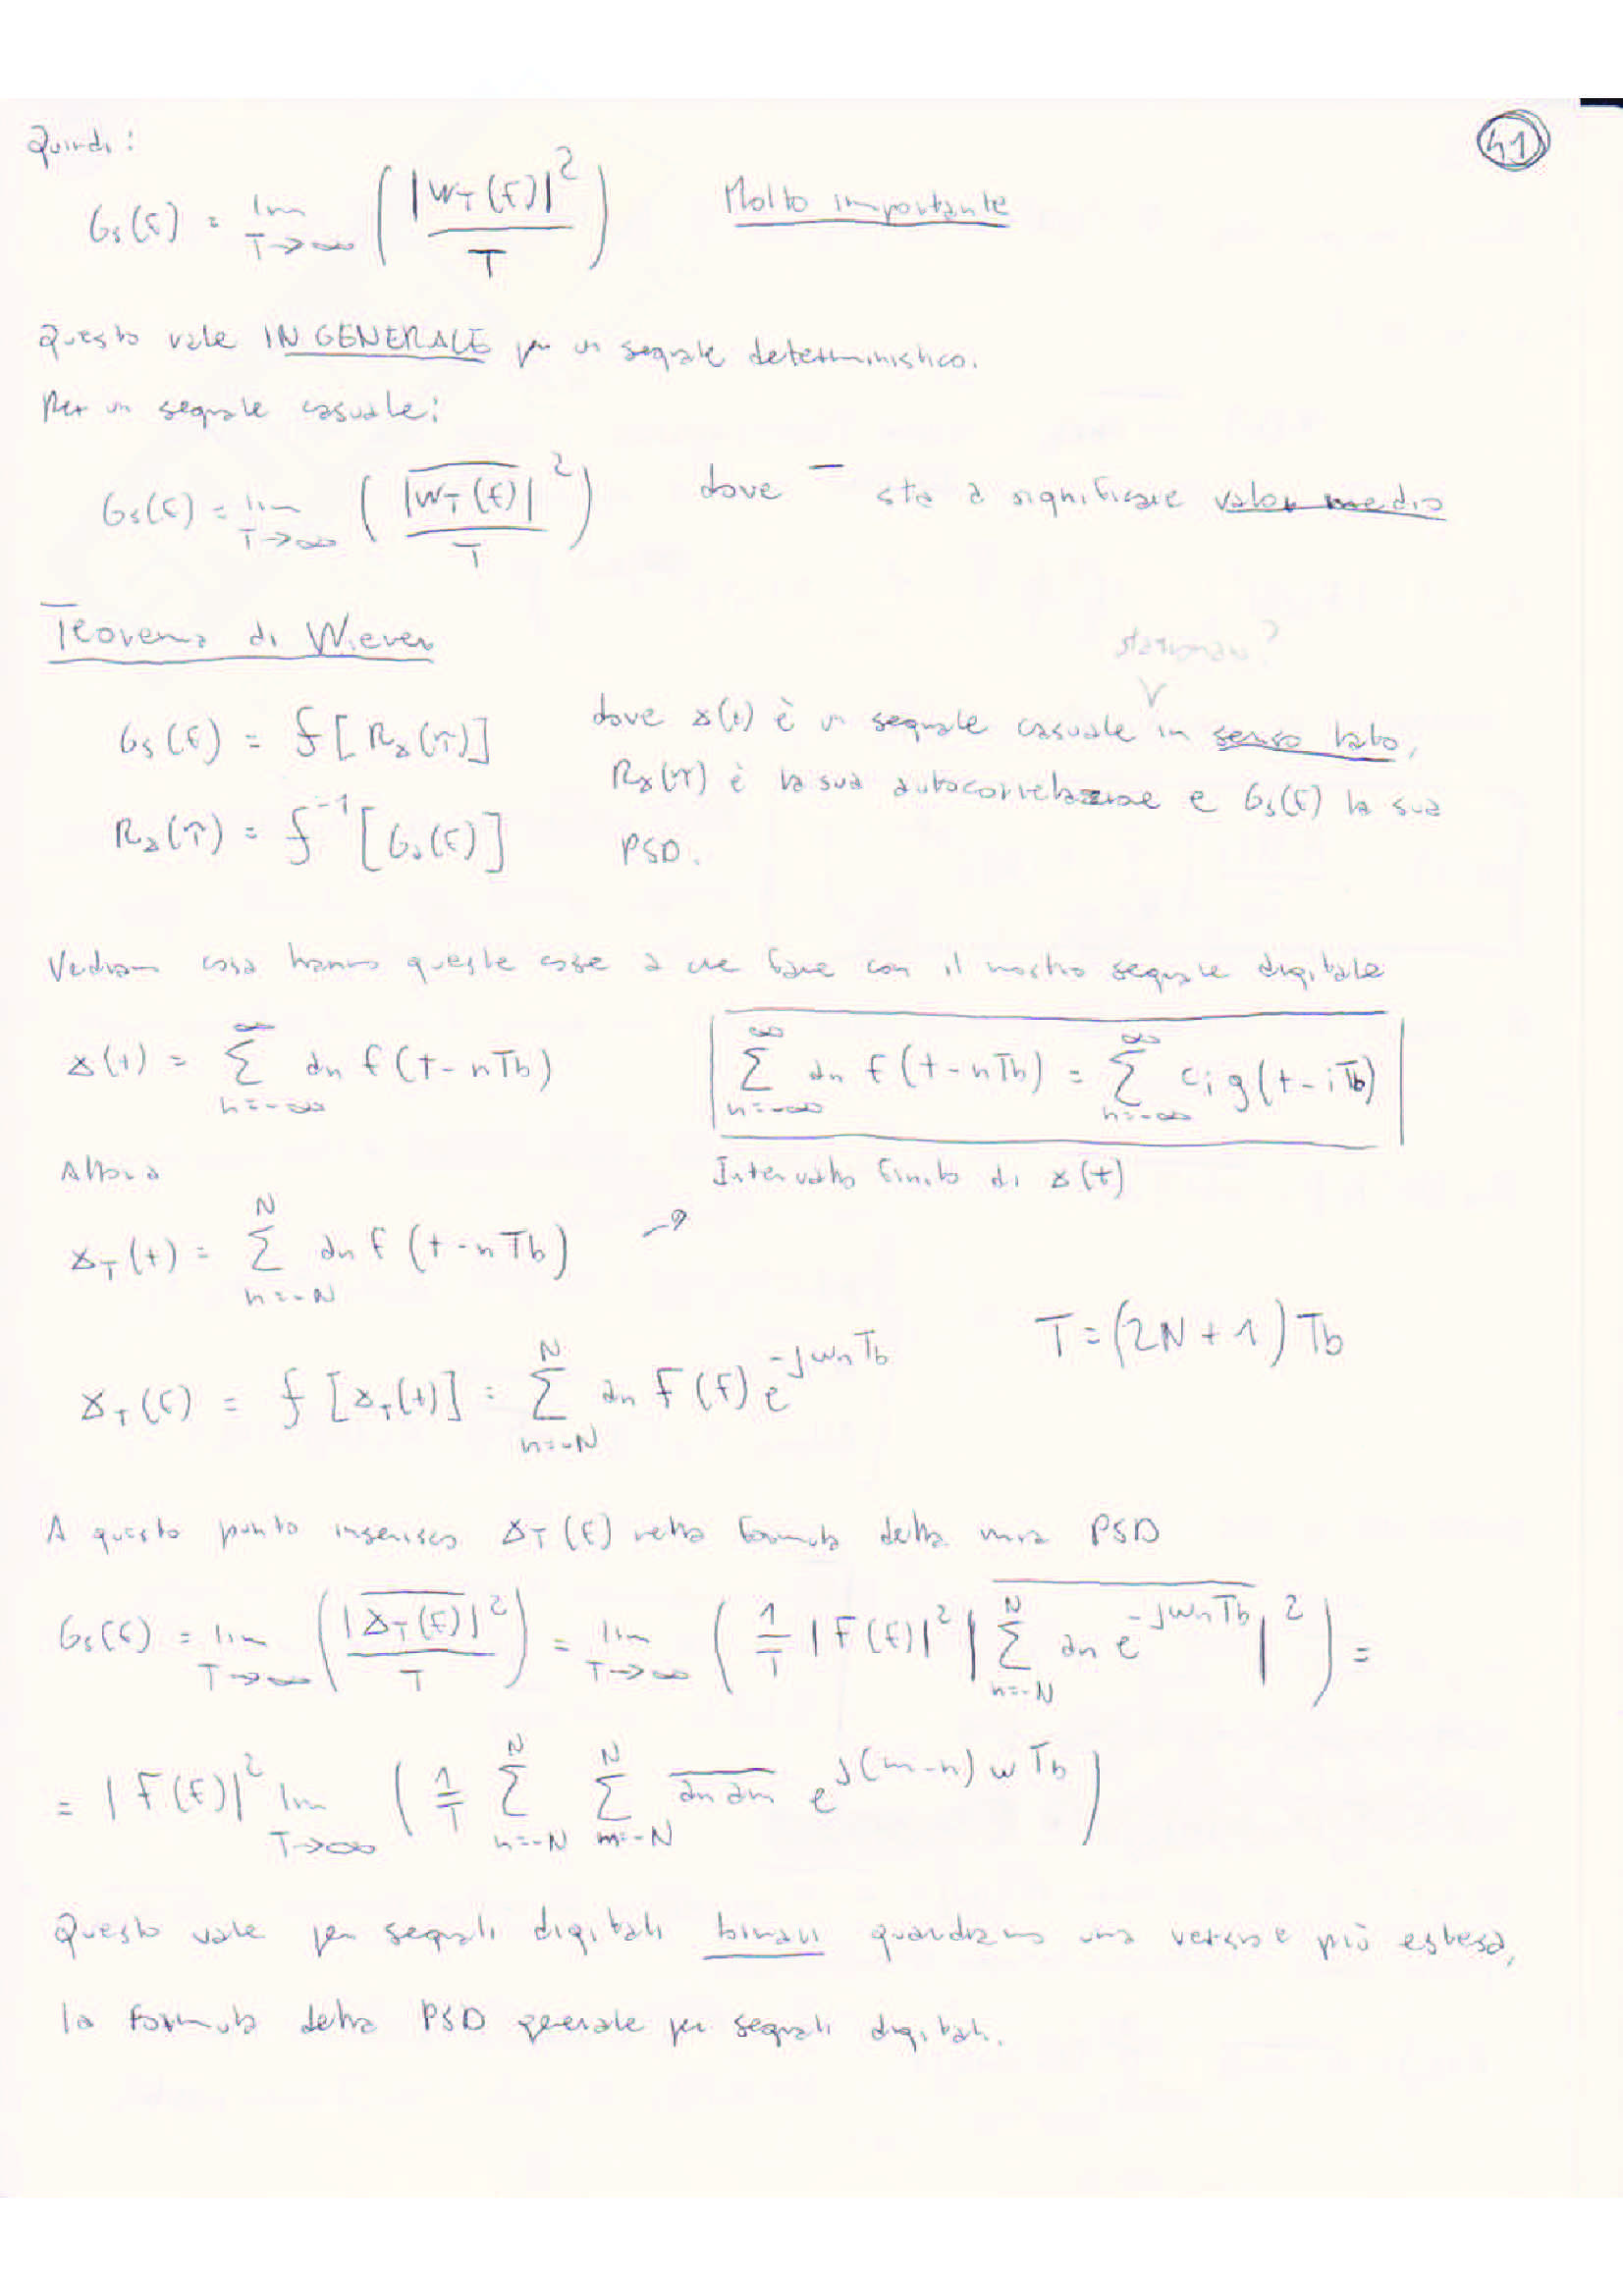 Quindi: 41
Gs(f) = lim T→∞ ( |W_T(f)|² / T ) Molto importante
Questo vale IN GENERALE per un segnale deterministico.
Per un segnale casuale:
Gs(f) = lim T→∞ ( \overline{|W_T(f)|}² / T ) dove ‾ sta a significare valor medio
Teorema di Wiever
stazionario?
Gs(f) = f[Rs(τ)] dove s(t) è un segnale casuale ∨ in senso lato,
Rs(τ) è la sua autocorrelazione e Gs(f) la sua
Rs(τ) = f⁻¹[Gs(f)] PSD.
Vediamo cosa hanno queste cose a che fare con il nostro segnale digitale
s(t) = ∑_{n=-∞}^{∞} an f(t-nTb) ∑_{n=-∞}^{∞} an f(t-nTb) = ∑_{n=-∞}^{∞} ci g(t-iTb)
Allora Intervallo finito di s(t)
s_T(t) = ∑_{n=-N}^{N} an f(t-nTb) →
T=(2N+1)Tb
S_T(f) = f[s_T(t)] = ∑_{n=-N}^{N} an F(f) e^{-jωnTb}
A questo punto inserisco S_T(f) nella formula della mia PSD
Gs(f) = lim T→∞ ( |\overline{S_T(f)}|² / T ) = lim T→∞ ( 1/T |F(f)|² \overline{|∑_{n=-N}^{N} an e^{-jωnTb}|}² ) =
= |F(f)|² lim T→∞ ( 1/T ∑_{n=-N}^{N} ∑_{m=-N}^{N} \overline{an am} e^{j(m-n)ωTb} )
Questo vale per segnali digitali binari guardiamo una versione più estesa,
la formula della PSD generale per segnali digitali.